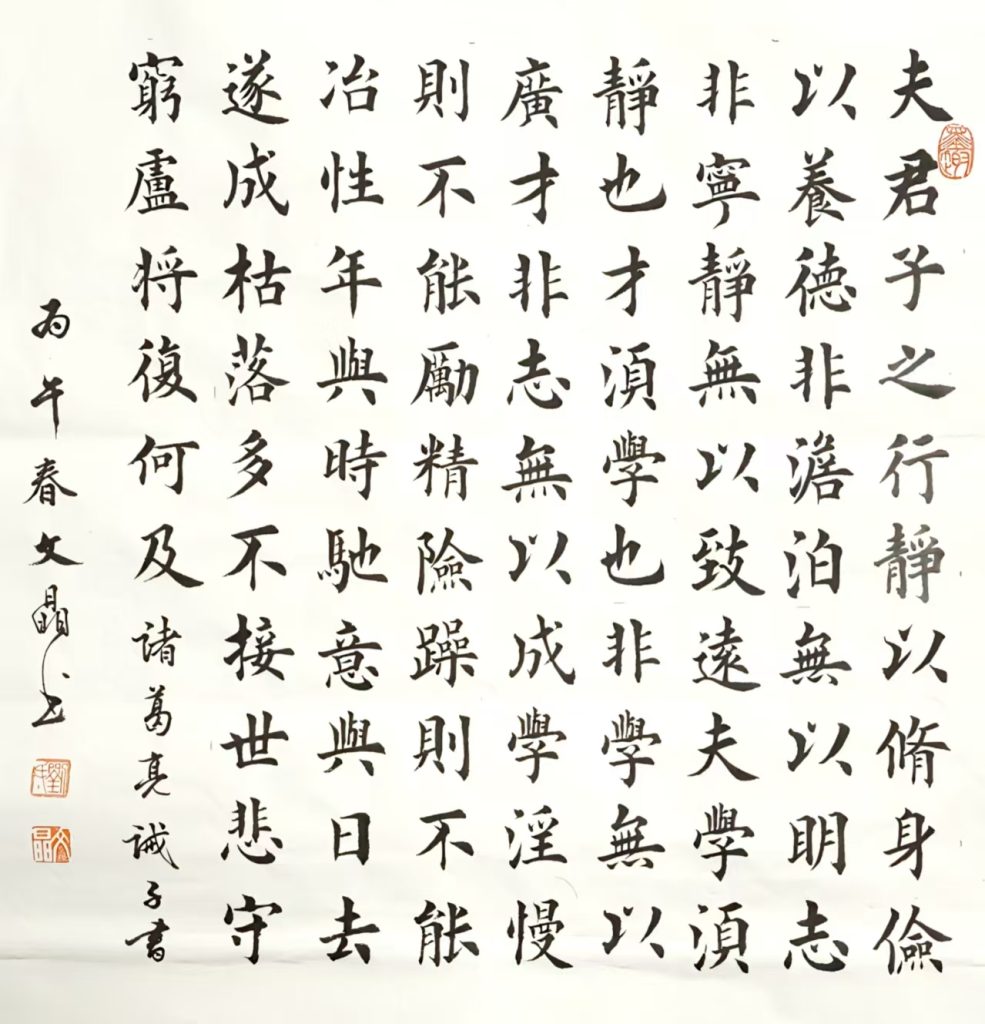 夫君子之行靜以脩身儉
以養德非澹泊無以明志
非寧靜無以致遠夫學須
靜也才須學也非學無以
廣才非志無以成學淫慢
則不能勵精險躁則不能
冶性年與時馳意與日去
遂成枯落多不接世悲守
窮盧將復何及諸葛亮誡子書
丙午春文晶書
劉氏
文晶